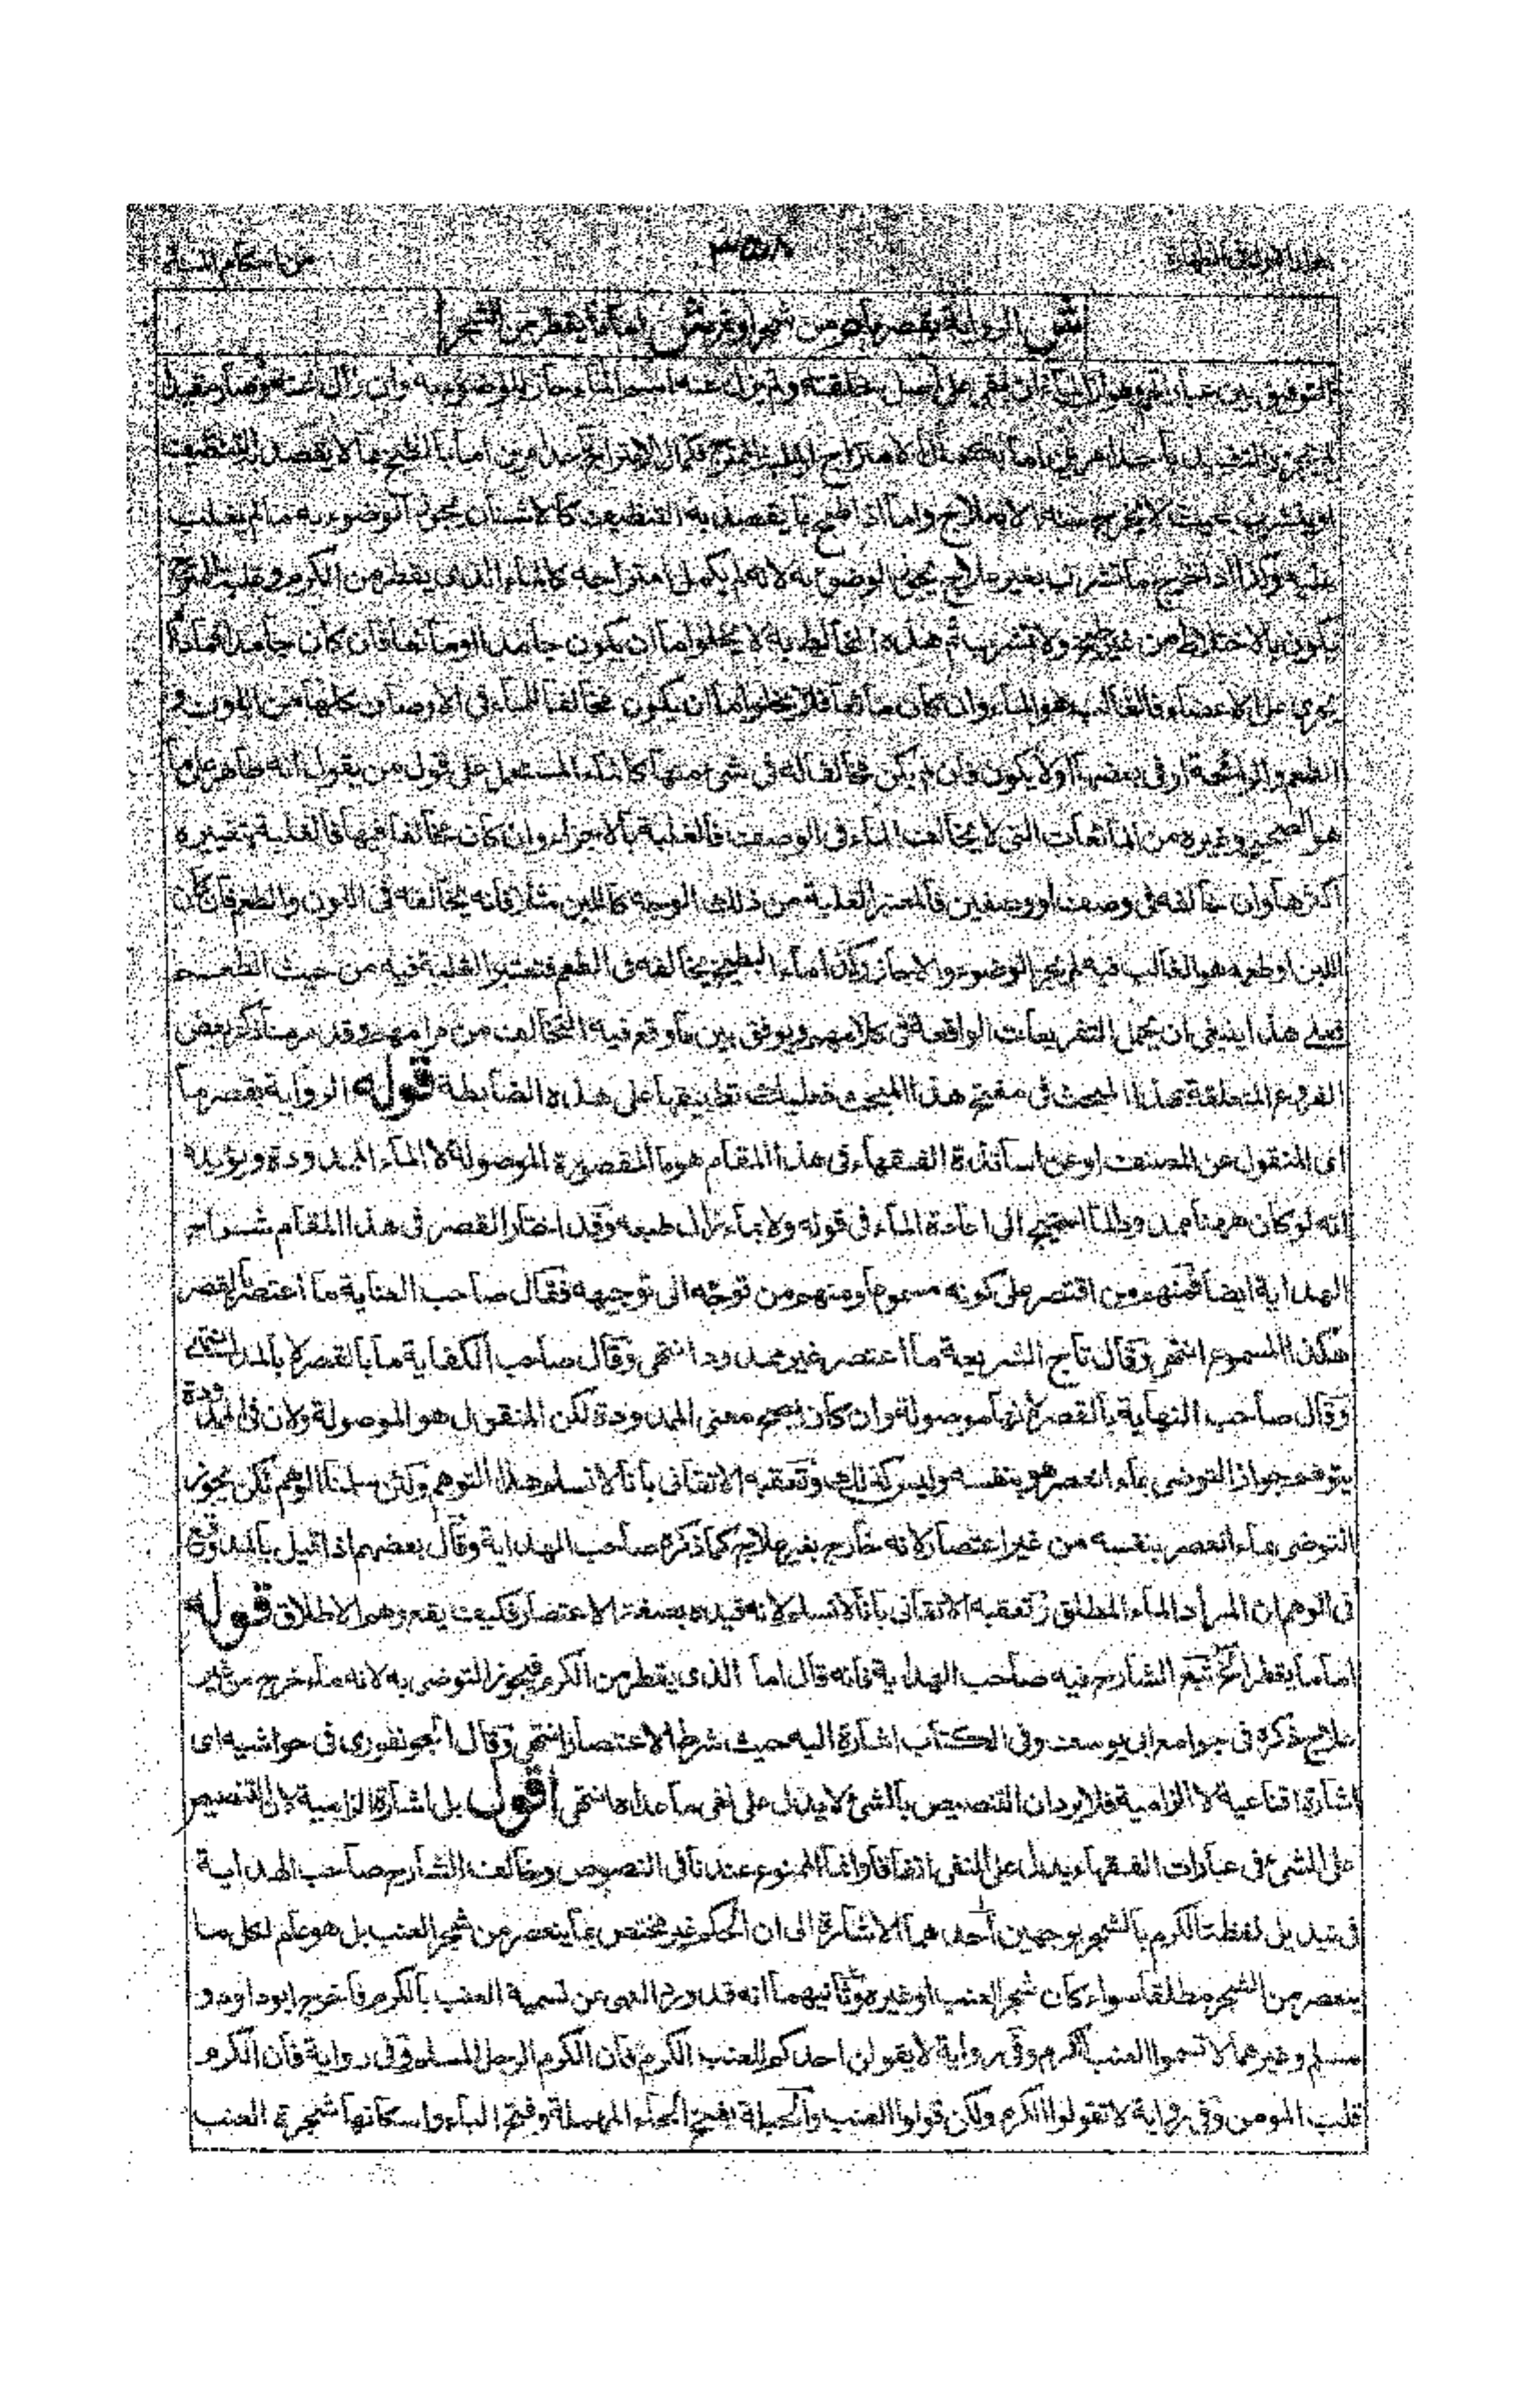 ٣٥٨
ش الرواية بقصر ما م من شجر او ثمر ش اما ما يقطر من الشجر
التوفيق بين عباراتهم وهو ان الماء ان بقي على اصل خلقته ولم يزل عنه اسم الماء جاز الوضوء به وان زال عنه وصار مقيدا لم يجز والتقييد باحد امرين اما بكمال الامتزاج او بغلبة الممتزج فكمال الامتزاج باحد امرين اما بالطبخ بما لا يقصد به التنظيف
او بتشرب بحيث لا يخرج منه الا بعلاج واما اذا طبخ بما يقصد به التنظيف كالاشنان يجوز الوضوء به ما لم يغلب
عليه وكذا اذا خرج ما تشرب بغير علاج يجوز الوضوء به لانه لم يكمل امتزاجه كالماء الذي يقطر من الكرم وغلبة الممتزج
يكون بالاختلاط من غير طبخ ولا تشرب ثم هذه المخالطة لا يخلو اما ان يكون جامدا او مائعا فان كان جامدا فما دام
يجري على الاعضاء فالغالب هو الماء وان كان مائعا فلا يخلو اما ان يكون مخالفا للماء في الاوصاف كلها من اللون و
الطعم والرائحة او في بعضها او لا يكون فان لم يكن مخالفا له في شئ منها كالماء المستعمل على قول من يقول انه طاهر على ما
هو الصحيح وغيره من المائعات التي لا يخالف الماء في الوصف فالغلبة بالاجزاء وان كان مخالفا فيها فالغلبة بتغييره
اكثرها وان خالفه في وصف او وصفين فالمعتبر الغلبة من ذلك الوجه كاللبن مثلا فانه يخالفه في اللون والطعم فان كان
اللبن او طعمه هو الغالب فيه لم يجز الوضوء والا جاز وكذا ماء البطيخ يخالفه في الطعم فتعتبر الغلبة فيه من حيث الطعم
فعلى هذا ينبغي ان يحمل التفريعات الواقعة في كلامهم ويوفق بين ما وقع فيه التخالف من مرامهم وقد مر منا ذكر بعض
الفروع المتعلقة بهذا المبحث في مفتتح هذا المبحث فعليك تطبيقها على هذه الضابطة قوله الرواية بقصر ما
اى المنقول عن المصنف او عن اساتذة الفقهاء في هذا المقام هو ما المقصورة الموصولة لا الماء الممدودة ويؤيده
انه لو كان ههنا ممدودا لما احتيج الى اعادة الماء في قوله ولا بماء زال طبعه وقد اختار القصر في هذا المقام شراح
الهداية ايضا فمنهم من اقتصر على كونه مسموعا ومنهم من توجه الى توجيهه فقال صاحب العناية ما اعتصر بالقصر
هكذا المسموع انتهى وقال تاج الشريعة ما اعتصر غير ممدود انتهى وقال صاحب الكفاية ما بالقصر لا بالمد انتهى
وقال صاحب النهاية بالقصر لانها موصولة وان كان يصح معنى الممدودة لكن المنقول هو الموصولة ولان في الممدودة
يتوهم جواز التوضى بماء انعصر هو بنفسه وليس كذلك وتعقبه الاتقاني بانا لا نسلم هذا التوهم ولئن سلمنا الوهم لكن يجوز
التوضى بماء انعصر بنفسه من غير اعتصار لانه خارج بغير علاج كما ذكره صاحب الهداية وقال بعضهم اذا قيل بالمد وقع
في الوهم ان المراد الماء المطلق وتعقبه الاتقاني بانا لا نسلم لانه قيده بصفة الاعتصار فكيف يقع وهم الاطلاق قوله
اما ما يقطر الخ تبع الشارح فيه صاحب الهداية فانه قال اما الذي يقطر من الكرم فيجوز التوضى به لانه ماء خرج من غير
علاج ذكره في جوامع ابي يوسف وفي الكتاب اشارة اليه حيث شرط الاعتصار انتهى وقال الجونفوري في حواشيه اى
اشارة اقناعية لا الزامية فلا يرد ان التنصيص بالشئ لا يدل على نفى ما عداه انتهى اقول بل اشارة الزامية لان التنصيص
على الشئ في عبارات الفقهاء يدل على النفى اتفاقا وانما الممنوع عندنا في النصوص وخالف الشارح صاحب الهداية
في تبديل لفظة الكرم بالشجر بوجهين احدهما الاشارة الى ان الحكم غير مختص بما ينعصر من شجر العنب بل هو عام لكل ما
ينعصر من الشجر مطلقا سواء كان شجر العنب او غيره وثانيهما انه قد ورد النهى عن تسمية العنب بالكرم فاخرج ابو داود و
مسلم وغيرهما لا تسموا العنب الكرم وفي رواية لا يقولن احدكم للعنب الكرم فان الكرم الرجل المسلم وفي رواية فان الكرم
قلب المومن وفي رواية لا تقولوا الكرم ولكن قولوا العنب والحبلة بفتح الحاء المهملة وفتح الباء واسكانها شجرة العنب